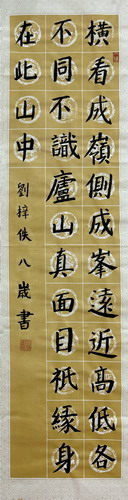 橫看成嶺側成峯遠近高低各
不同不識廬山真面目祇緣身
在此山中
劉梓俠八歲書